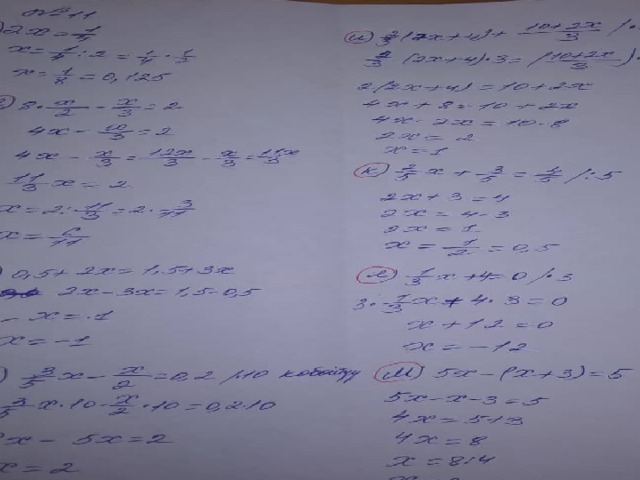 №11
2x = 1/4
x = 1/4 : 2 = 1/4 · 1/2
x = 1/8 = 0,125
8 · x/2 - x/3 = 2
4x - x/3 = 2
4x - x/3 = 12x/3 - x/3 = 11x/3
11/3 x = 2
x = 2 : 11/3 = 2 · 3/11
x = 6/11
0,5 + 2x = 1,5 + 3x
2x - 3x = 1,5 - 0,5
- x = 1
x = -1
3/5 x - x/2 = 0,2 /·10 көбөйтүү
3/5 x · 10 - x/2 · 10 = 0,2·10
6x - 5x = 2
x = 2
и) 2/3 (2x+4) = 10+2x/3
2/3 (2x+4) · 3 = (10+2x/3) ·
2(2x+4) = 10+2x
4x + 8 = 10 + 2x
4x - 2x = 10 - 8
2x = 2
x = 1
к) 2/5 x + 3/5 = 4/5 /·5
2x + 3 = 4
2x = 4-3
2x = 1
x = 1/2 = 0,5
л) 1/3 x + 4 = 0 /·3
3 · 1/3 x + 4 · 3 = 0
x + 12 = 0
x = -12
м) 5x - (x+3) = 5
5x - x - 3 = 5
4x = 5+3
4x = 8
x = 8:4